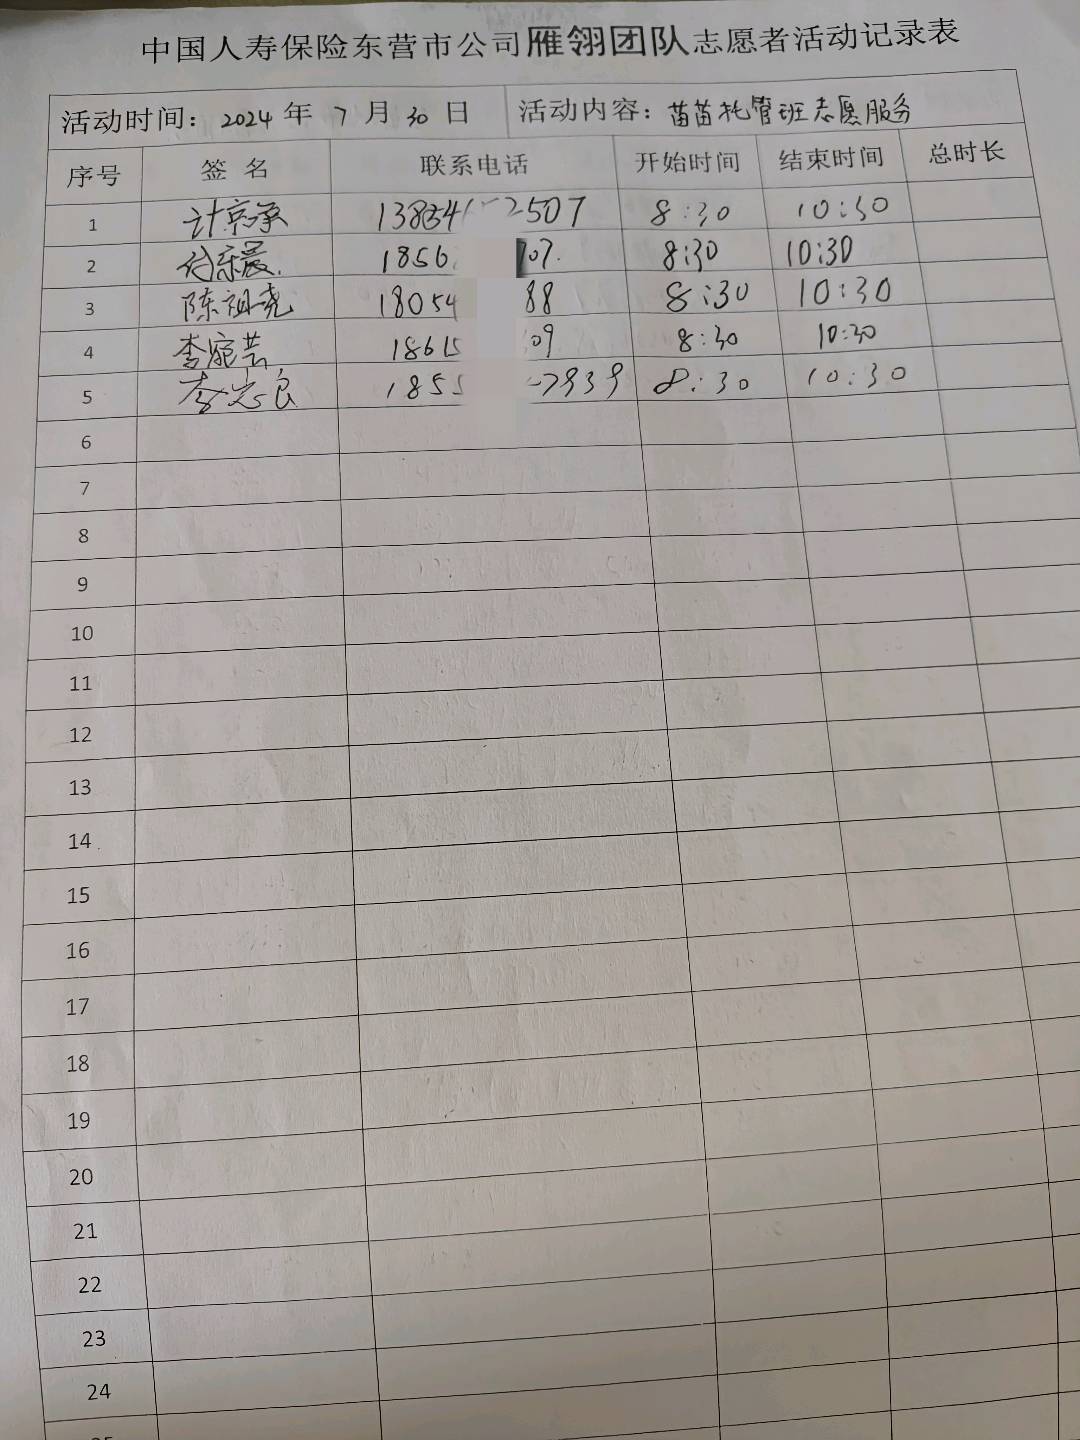 中国人寿保险东营市公司雁翎团队志愿者活动记录表
活动时间：2024 年 7 月 30 日 活动内容：苗苗托管班志愿服务
序号 签 名 联系电话 开始时间 结束时间 总时长
1 计京承 13834 2507 8:30 10:30
2 1856 707. 8:30 10:30
3 陈祖尧 18054 88 8:30 10:30
4 李宛芸 18615 09 8:30 10:30
5 李志良 1855 7939 8:30 10:30
6
7
8
9
10
11
12
13
14
15
16
17
18
19
20
21
22
23
24